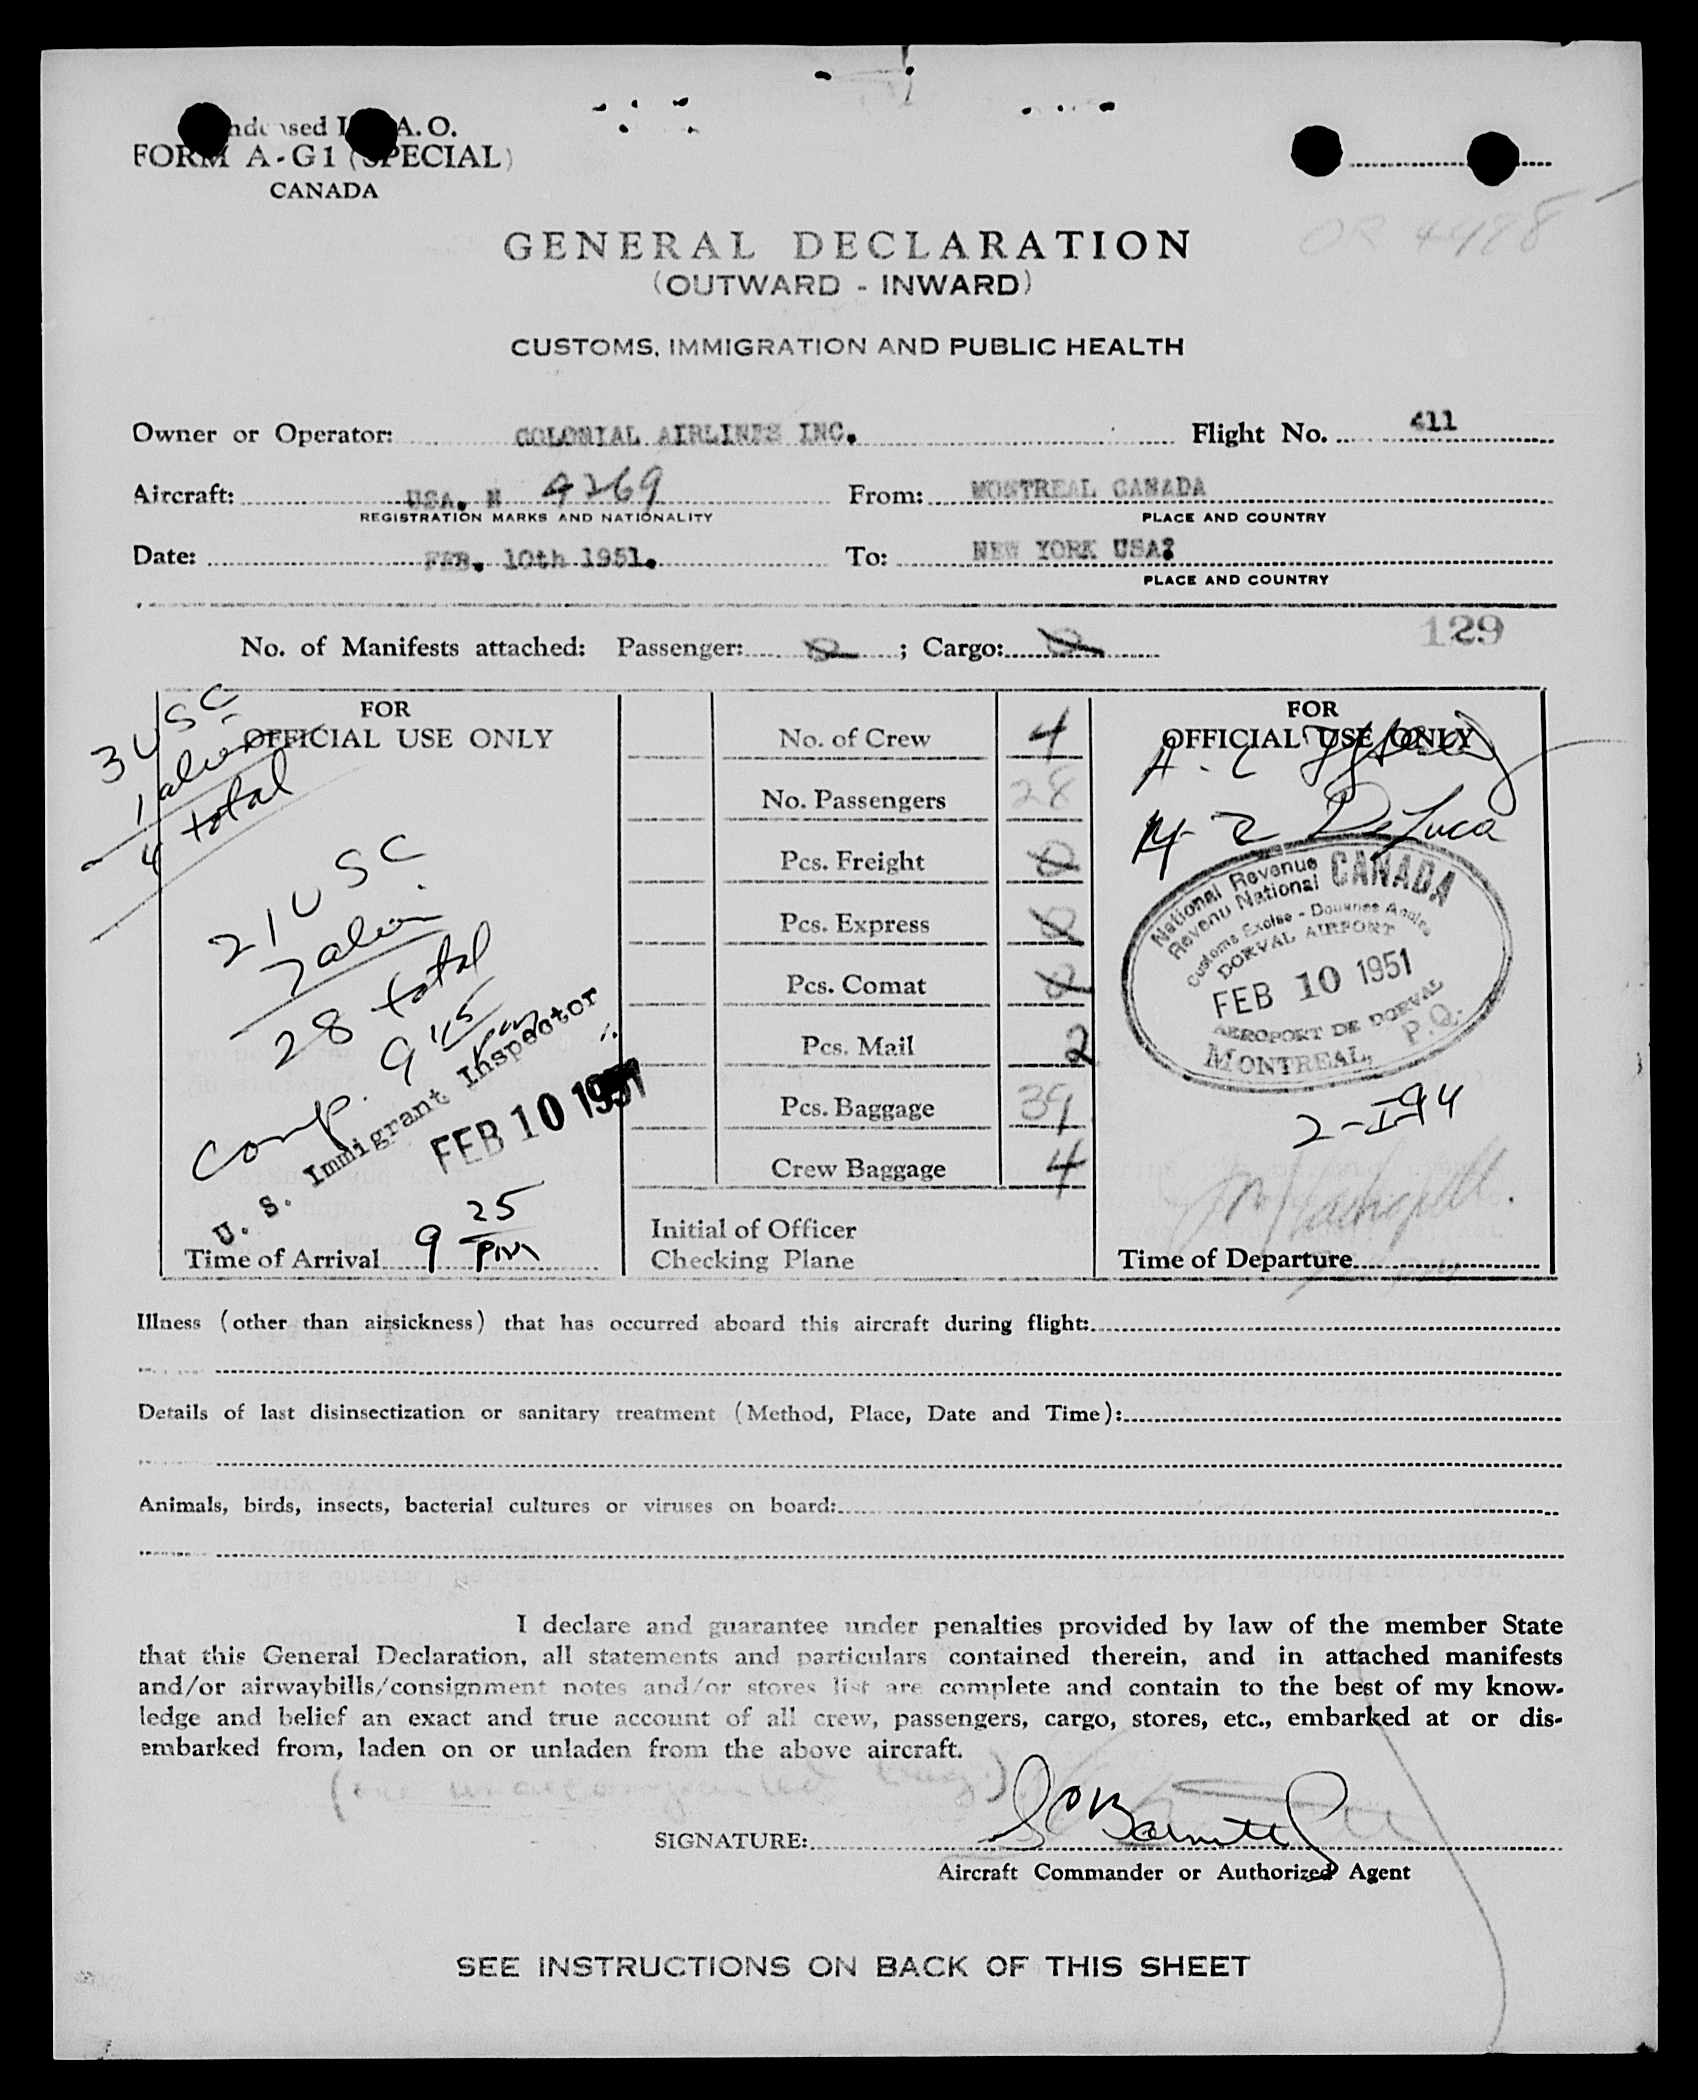 FORM A-G1 (SPECIAL)
CANADA
OR 4498
GENERAL DECLARATION
(OUTWARD - INWARD)
CUSTOMS, IMMIGRATION AND PUBLIC HEALTH
Owner or Operator: COLONIAL AIRLINES INC. Flight No. 411
Aircraft: USA. N 4269 From: MONTREAL CANADA
REGISTRATION MARKS AND NATIONALITY PLACE AND COUNTRY
Date: FEB. 10th 1951. To: NEW YORK USA?
PLACE AND COUNTRY
129
No. of Manifests attached: Passenger: 0; Cargo: 0
FOR
OFFICIAL USE ONLY
3 USC
1 alien
4 total
21 USC
7 alien
28 total
9 45 pm
comp.
U. S. Immigrant Inspector
FEB 10 1951
Time of Arrival 9 25 PM
No. of Crew 4
No. Passengers 28
Pcs. Freight 0
Pcs. Express 0
Pcs. Comat 0
Pcs. Mail 2
Pcs. Baggage 39
Crew Baggage 4
Initial of Officer
Checking Plane
FOR
OFFICIAL USE ONLY
De Luca
National Revenue CANADA
Revenu National
Customs Excise - Douanes Accise
DORVAL AIRPORT
FEB 10 1951
AEROPORT DE DORVAL
MONTREAL, P.Q.
2-I-94
Time of Departure
Illness (other than airsickness) that has occurred aboard this aircraft during flight:
Details of last disinsectization or sanitary treatment (Method, Place, Date and Time):
Animals, birds, insects, bacterial cultures or viruses on board:
I declare and guarantee under penalties provided by law of the member State
that this General Declaration, all statements and particulars contained therein, and in attached manifests
and/or airwaybills/consignment notes and/or stores list are complete and contain to the best of my know-
ledge and belief an exact and true account of all crew, passengers, cargo, stores, etc., embarked at or dis-
embarked from, laden on or unladen from the above aircraft.
(one unaccompanied bag.)
SIGNATURE:
Aircraft Commander or Authorized Agent
SEE INSTRUCTIONS ON BACK OF THIS SHEET